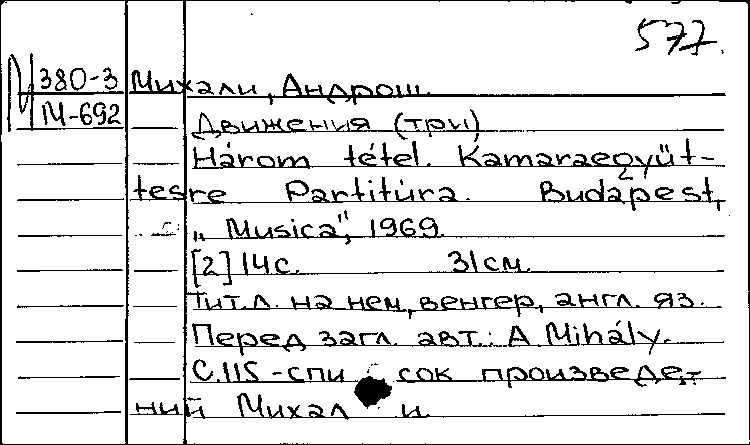 577.
380-3 Михали, Андрош.
М-692
Движения (три)
Három tétel. Kamaraegyüt-
tesre Partitúra. Budapest,
„Musica", 1969.
[2] 14 с. 31 см.
Тит.л. на нем, венгер, англ. яз.
Перед загл. авт.: A Mihály.
С. 115 - список произведе-
ний Михали.